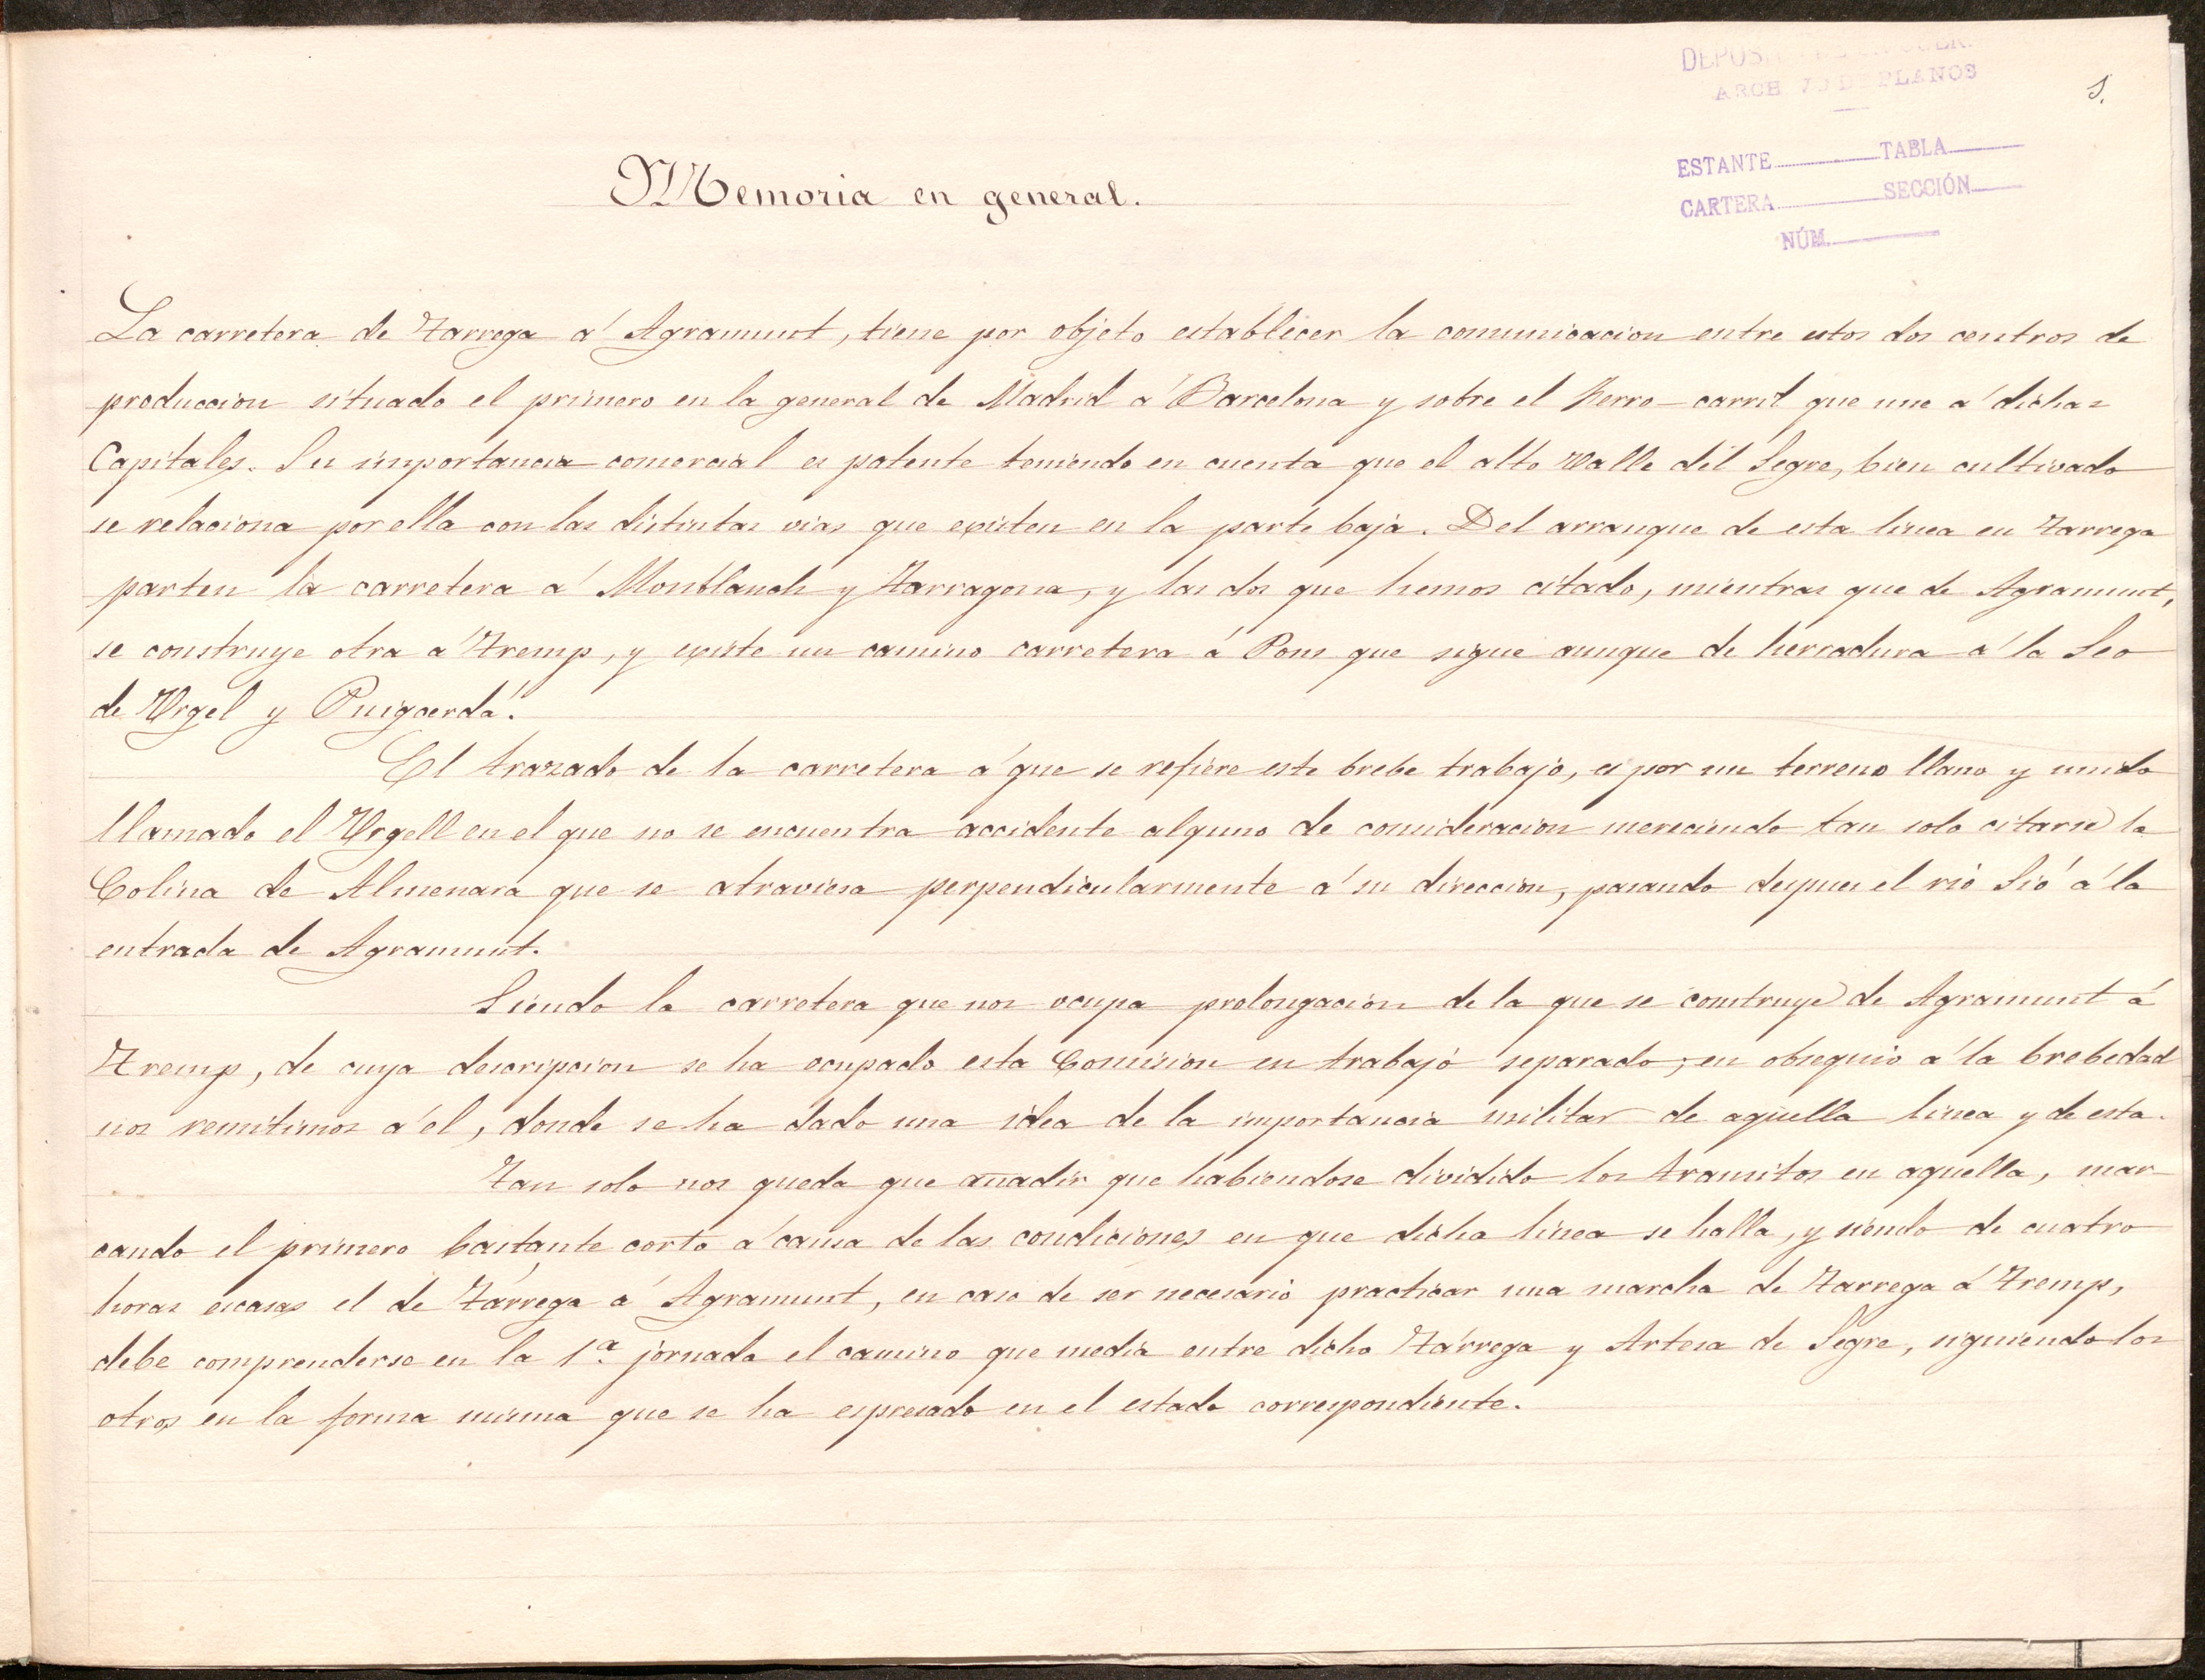 1.
ARCHIVO DE PLANOS
ESTANTE TABLA
CARTERA SECCIÓN
NÚM.
Memoria en general.
La carretera de Tarrega á Agramunt, tiene por objeto establecer la comunicacion entre estos dos centros de
produccion situado el primero en la general de Madrid á Barcelona y sobre el ferro-carril que une á dichas
Capitales. Su importancia comercial es patente teniendo en cuenta que el alto Valle del Segre, bien cultivado
se relaciona por ella con las distintas vias que existen en la parte baja. Del arranque de esta linea en Tarrega
parten la carretera á Montblanch y Tarragona, y las dos que hemos citado, mientras que de Agramunt,
se construye otra á Tremp, y existe un camino carretera á Pons que sigue aunque de herradura á la Seo
de Urgel y Puigcerdá.
El trazado de la carretera á que se refiere este brebe trabajo, es por un terreno llano y unido
llamado el Urgell en el que no se encuentra accidente alguno de consideracion mereciendo tan solo citarse la
Colina de Almenara que se atraviesa perpendicularmente á su direccion, pasando despues el rio Sió á la
entrada de Agramunt.
Siendo la carretera que nos ocupa prolongacion de la que se construye de Agramunt á
Tremp, de cuya descripcion se ha ocupado esta Comision en trabajo separado, en obsequio á la brebedad
nos remitimos á él, donde se ha dado una idea de la importancia militar de aquella linea y de esta.
Tan solo nos queda que añadir que habiendose dividido los transitos en aquella, mar-
cando el primero bastante corto á causa de las condiciones en que dicha linea se halla, y siendo de cuatro
horas escasas el de Tárrega á Agramunt, en caso de ser necesario practicar una marcha de Tarrega á Tremp,
debe comprenderse en la 1ª jornada el camino que media entre dicho Tárrega y Artesa de Segre, siguiendo los
otros en la forma misma que se ha espresado en el estado correspondiente.